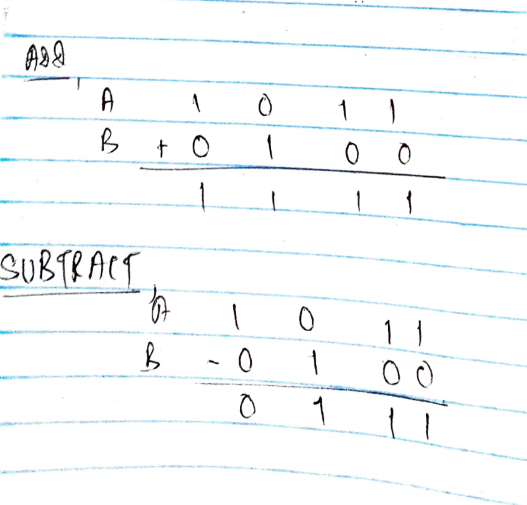 ADD,
A 1 0 1 1
B + 0 1 0 0
1 1 1 1
SUBTRACT,
A 1 0 1 1
B - 0 1 0 0
0 1 1 1